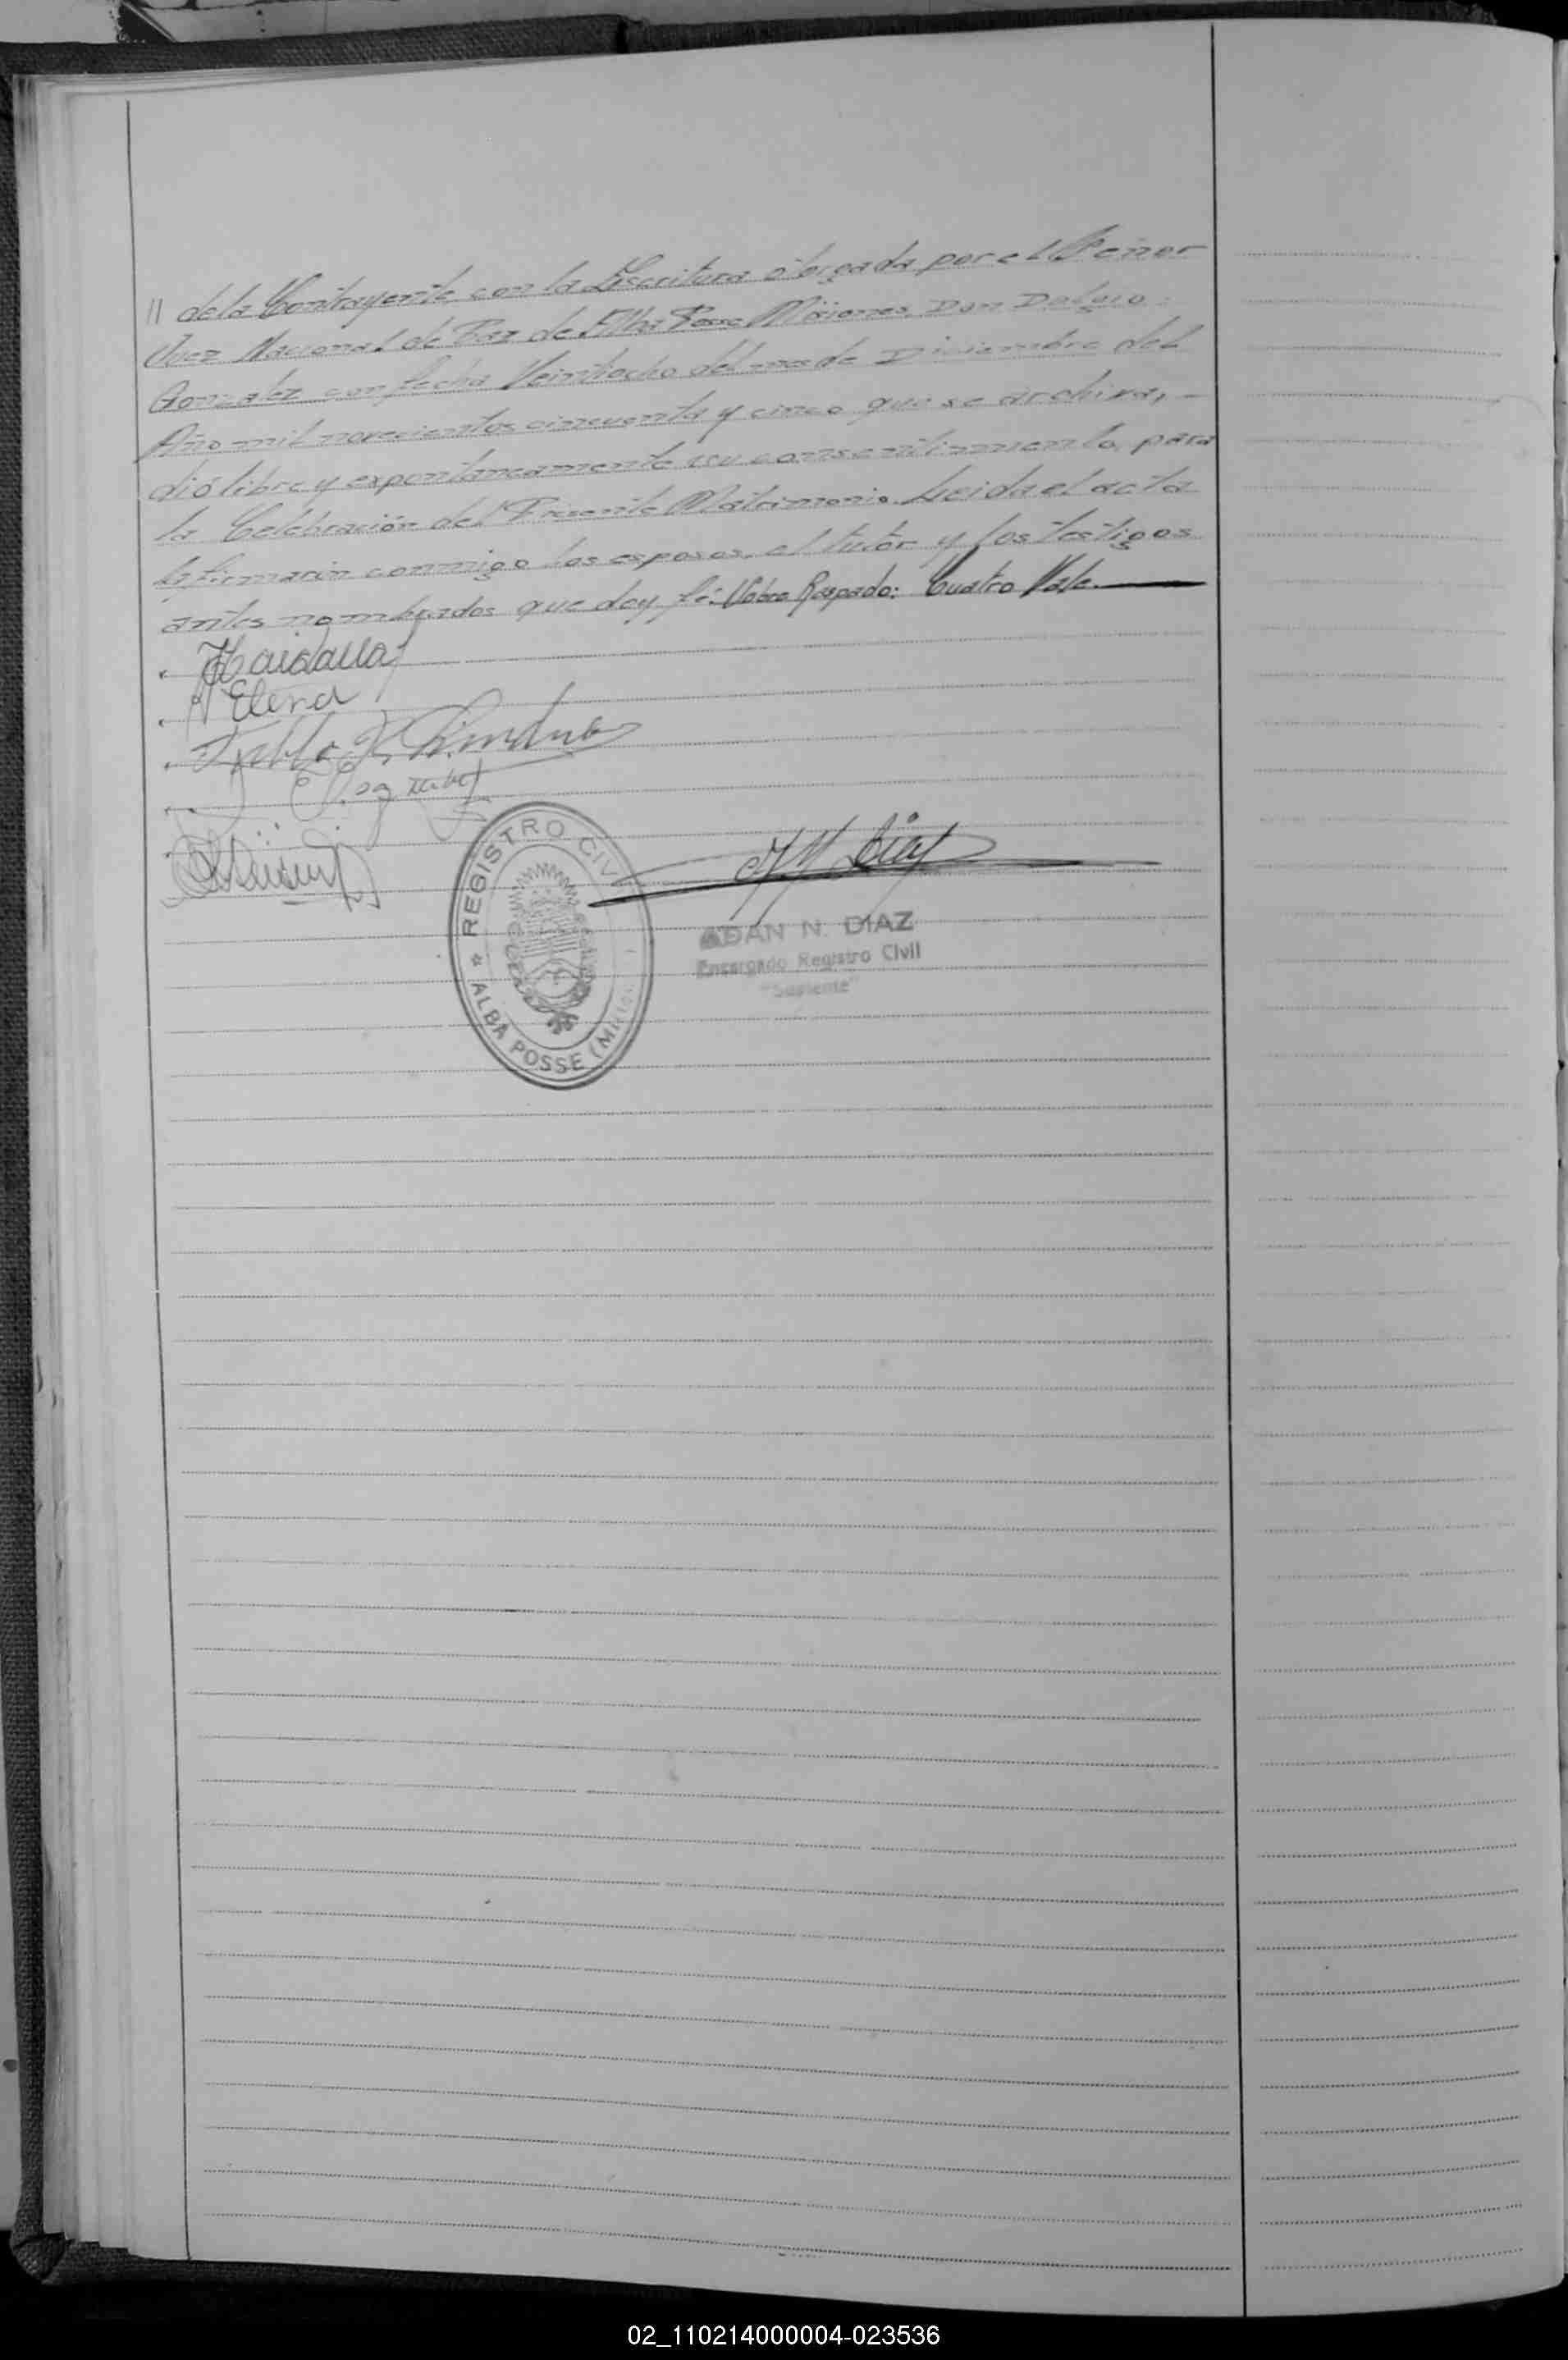 // de la Contrayente con la Escritura otorgada por el Señor
Juez Nacional de Paz de Alba Posse Misiones, Don
Gonzalez con fecha Veintiocho del mes de Diciembre del
Año mil novecientos cincuenta y cinco que se archiva, -
dió libre y expontaneamente su consentimiento para
la Celebración del Presente Matrimonio. Leida el acta
la firmarón conmigo los esposos, el tutor y los testigos
antes nombrados que doy fé. Sobre Raspado: Cuatro Vale.
Elena
REGISTRO CIVIL
ALBA POSSE
Diaz
ADAN N. DIAZ
Encargado Registro Civil
"Suplente"
02_110214000004-023536